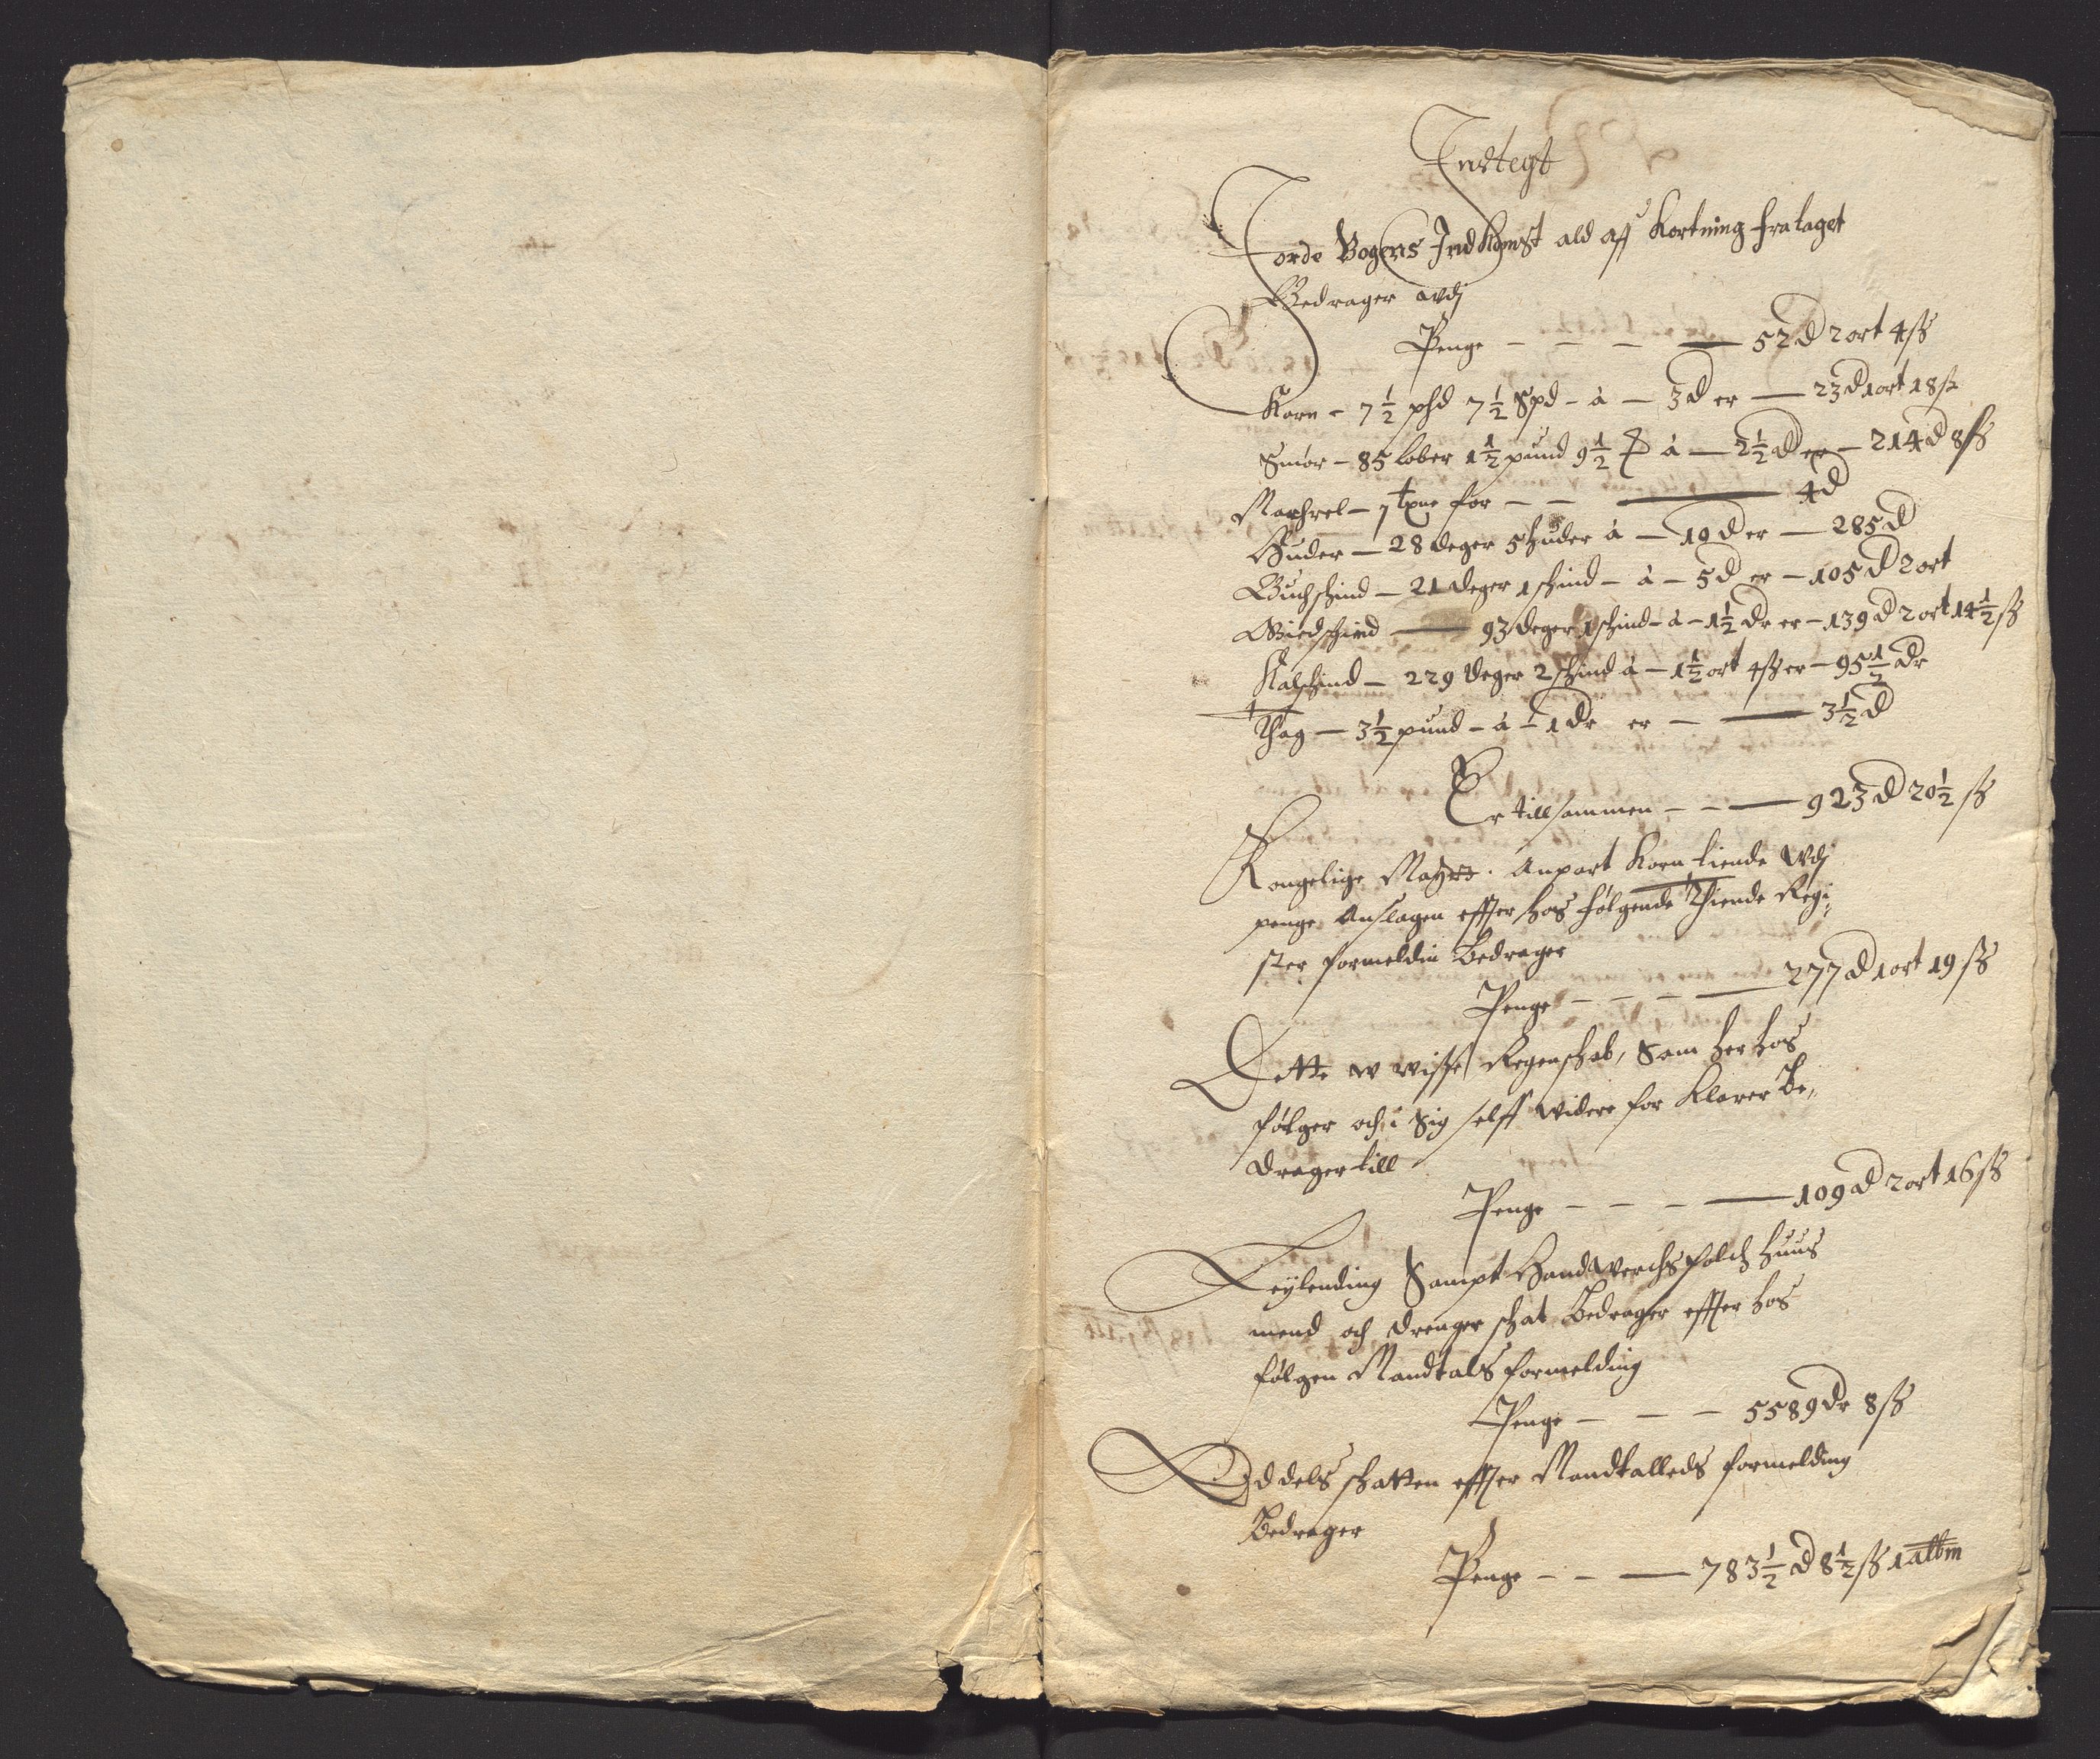 Indtegt
Jorde Bogens Indkomst ald aff Kortning frataget
Bedrager wdj
Penge - - - — 52 d 2 ort 4 ß
Korn - 7 1/2 phd 7 1/2 Spd - à — 3 d er — 23 d 1 ort 18 ß
Smør - 85 løber 1 1/2 pund 9 1/2 à — 2 1/2 d er - 214 d 8 ß
Machrel - 1 tøne for - - — 4 d
Huder — 28 deger 5 huder à — 10 d er — 285 d
Buchschind — 21 deger 1 schind - à - 5 d er - 105 d 2 ort
Giedschind — 93 deger 1 schind - à - 1 1/2 dr er - 139 d 2 ort 14 1/2 ß
Kalschind — 229 deger 2 schind à - 1 1/2 ort 4 ß er - 95 1/2 dr
Thag — 3 1/2 pund - à - 1 dr er - — 3 1/2 d
Er tillsammen - - — 923 d 20 1/2 ß
Kongelige Maytz. Anpart Korn tiende wdj
penge Anslagen effter hos følgende Thiende Regi-
ster formeldin Bedrager
Penge - - - — 277 d 1 ort 19 ß
Dette w wisse Regenschab, Som her hos
følger och i Sig selff widere for Klarer Be-
drager till
Penge - - - — 109 d 2 ort 16 ß
Leylending Sampt Handtwerchsfolch huus
mend och drenger schat Bedrager effter hos
følgen Mandtals formelding
Penge - - - 5589 dr 8 ß
Oddels schatten effter Mandtalleds formelding
Bedrager
Penge - - — 783 1/2 d 8 1/2 ß 1 albm